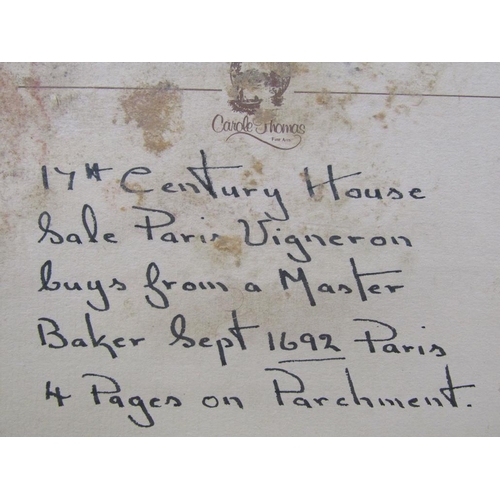 Carole Thomas
Fine Arts
17th Century House
Sale Paris Vigneron
buys from a Master
Baker Sept 1692 Paris
4 Pages on Parchment.